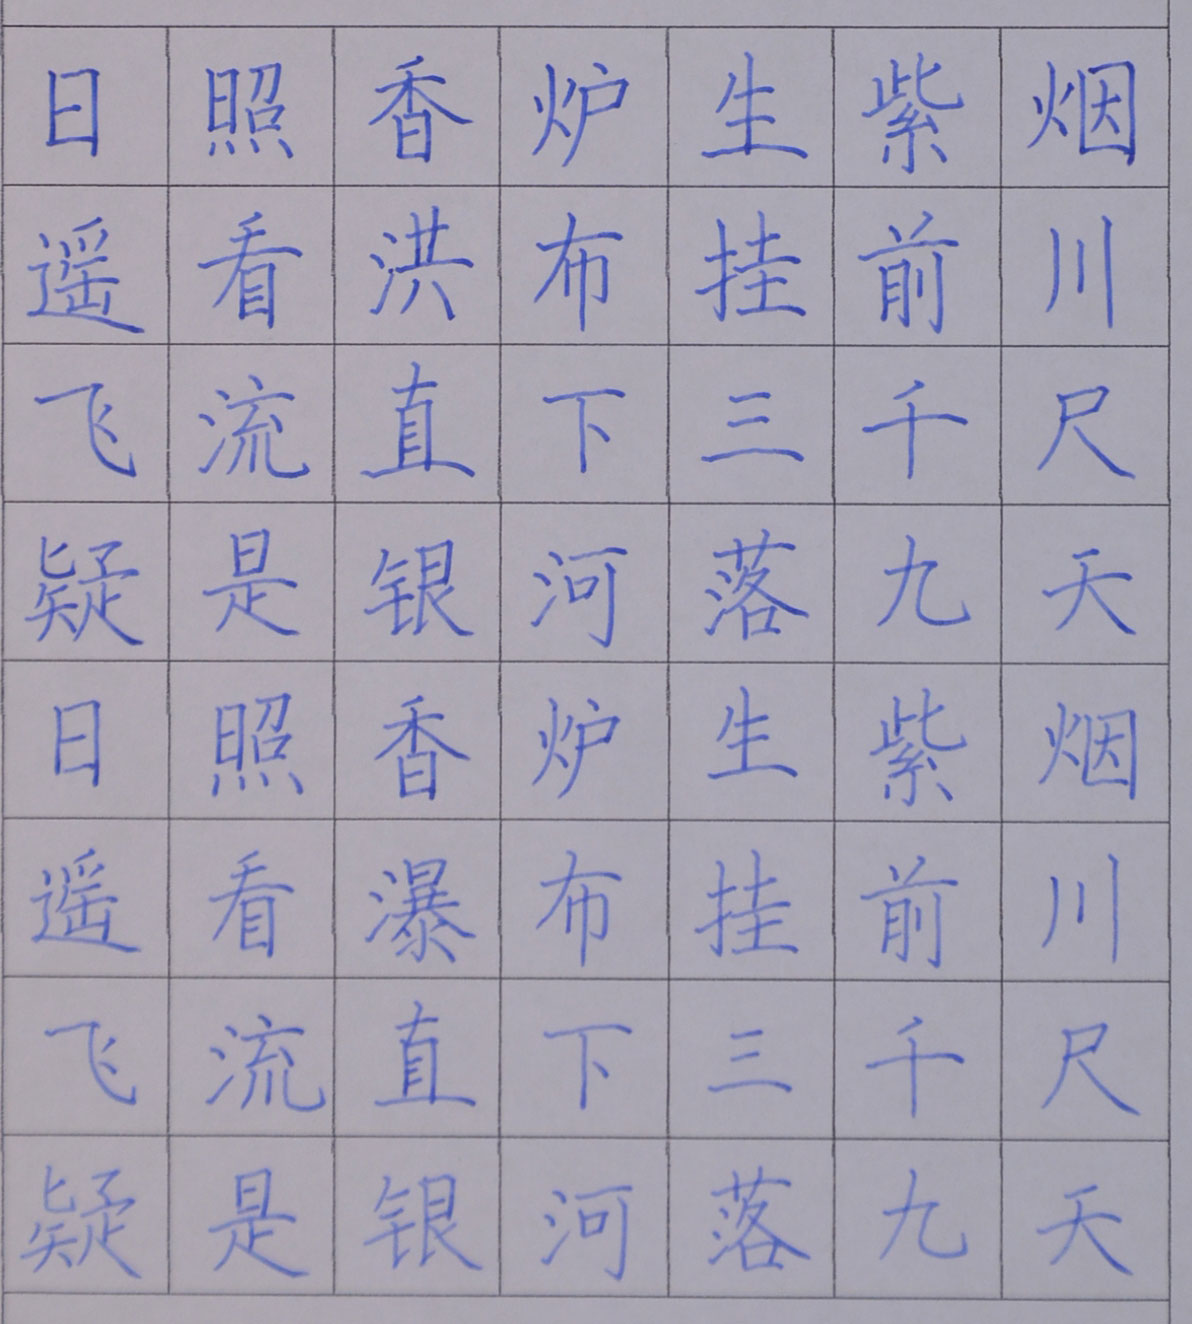 日照香炉生紫烟
遥看洪布挂前川
飞流直下三千尺
疑是银河落九天
日照香炉生紫烟
遥看瀑布挂前川
飞流直下三千尺
疑是银河落九天